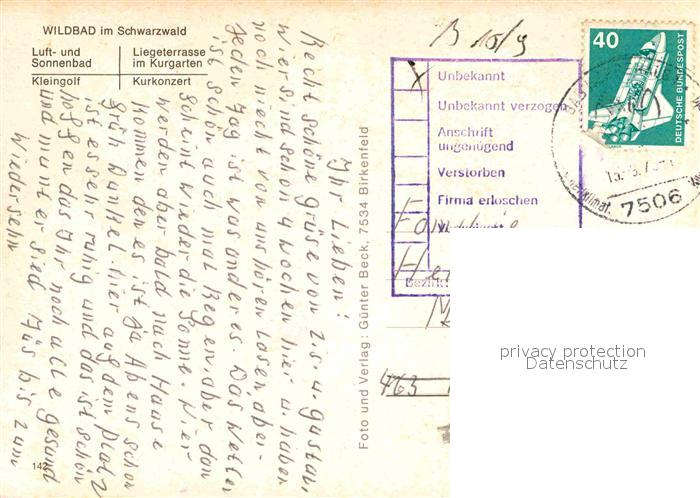 WILDBAD im Schwarzwald
Luft- und Sonnenbad
Liegeterrasse im Kurgarten
Kleingolf
Kurkonzert
B 10/9
40
DEUTSCHE BUNDESPOST
7506
x Unbekannt
Unbekannt verzogen
Anschrift ungenügend
Verstorben
Firma erloschen
Bezirk
463
privacy protection
Datenschutz
Foto und Verlag: Günter Beck, 7534 Birkenfeld
Ihr Lieben!
Recht schöne grüse von 2.s. u. gustav,
wir sind schon 4 wochen hier u. haben
noch niecht von uns hören lasen, aber
Jeden Tag ist was anderes. Das Wetter
ist schön auch mal Regen, aber dan
scheint wieder die Sonne. Wier
werden aber bald nach Hause
kommen den es ist ja Abens schon
früh Dunkel. hier auf dem Platz
ist es sehr ruhig und das ist schön
hoffen das Ihr noch alle gesund
und munter sied Tüs bis zum
Wiedersehn
142